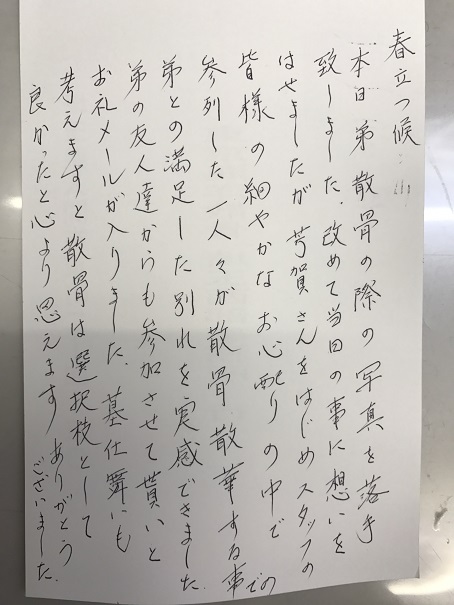 春立つ候…
本日 弟 散骨の際の写真を落手
致しました。改めて当日の事に想いを
はせましたが 芳賀さんをはじめスタッフの
皆様の細やかなお心配りの中で
参列した一人々が 散骨 散華する事での
弟との満足した別れを実感できました
弟の友人達からも参加させて貰いと
お礼メールが入りました。墓仕舞いも
考えますと 散骨は選択枝として
良かったと心より思えます ありがとう
ございました。